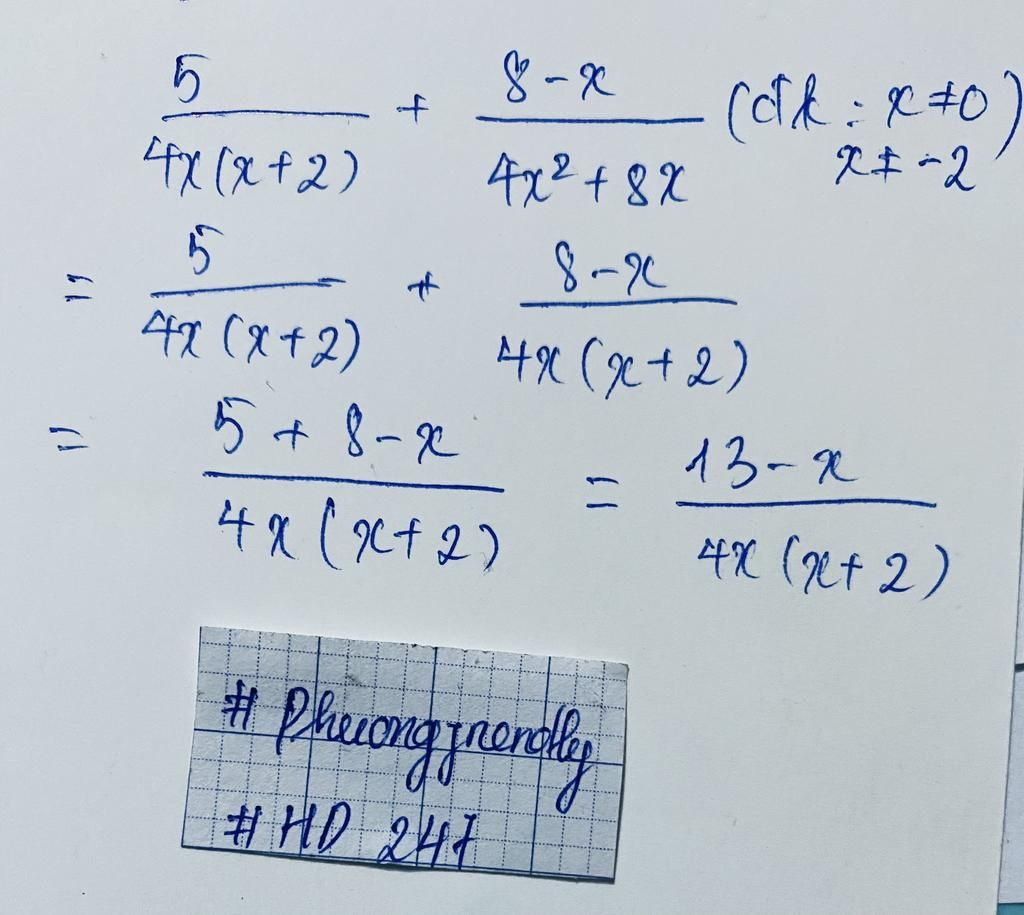 5/(4x(x+2)) + (8-x)/(4x²+8x) (đk: x≠0
x≠-2)
= 5/(4x(x+2)) + (8-x)/(4x(x+2))
= (5+8-x)/(4x(x+2)) = (13-x)/(4x(x+2))
# Phuongfriendly
# HD 247